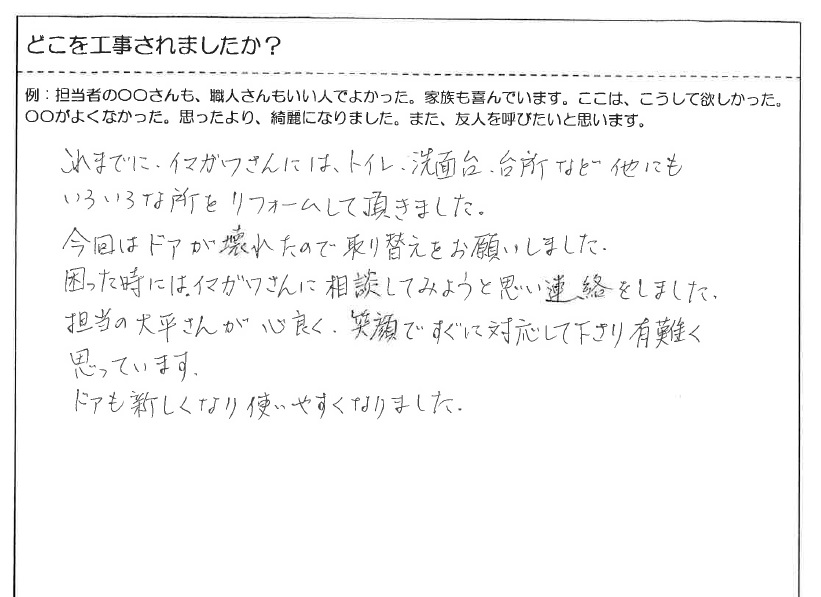 どこを工事されましたか？
例：担当者の〇〇さんも、職人さんもいい人でよかった。家族も喜んでいます。ここは、こうして欲しかった。
〇〇がよくなかった。思ったより、綺麗になりました。また、友人を呼びたいと思います。
これまでに、イマガワさんには、トイレ、洗面台、台所など他にも
いろいろな所をリフォームして頂きました。
今回はドアが壊れたので取り替えをお願いしました。
困った時には、イマガワさんに相談してみようと思い連絡をしました。
担当の大平さんが心良く、笑顔ですぐに対応して下さり有難く
思っています。
ドアも新しくなり使いやすくなりました。